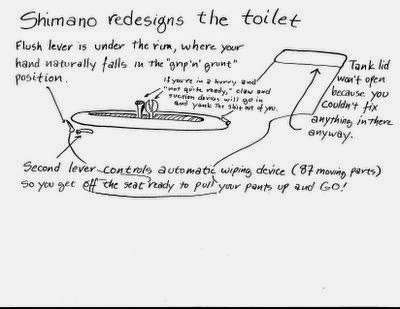 Shimano redesigns the toilet
Flush lever is under the rim, where your
hand naturally falls in the "grip 'n' grunt"
position.
If you're in a hurry and
"not quite ready," claw and
suction device will go in
and yank the shit out of you.
Tank lid
won't open
because you
couldn't fix
anything in there
anyway.
Second lever controls automatic wiping device (87 moving parts)
so you get off the seat ready to pull your pants up and GO!